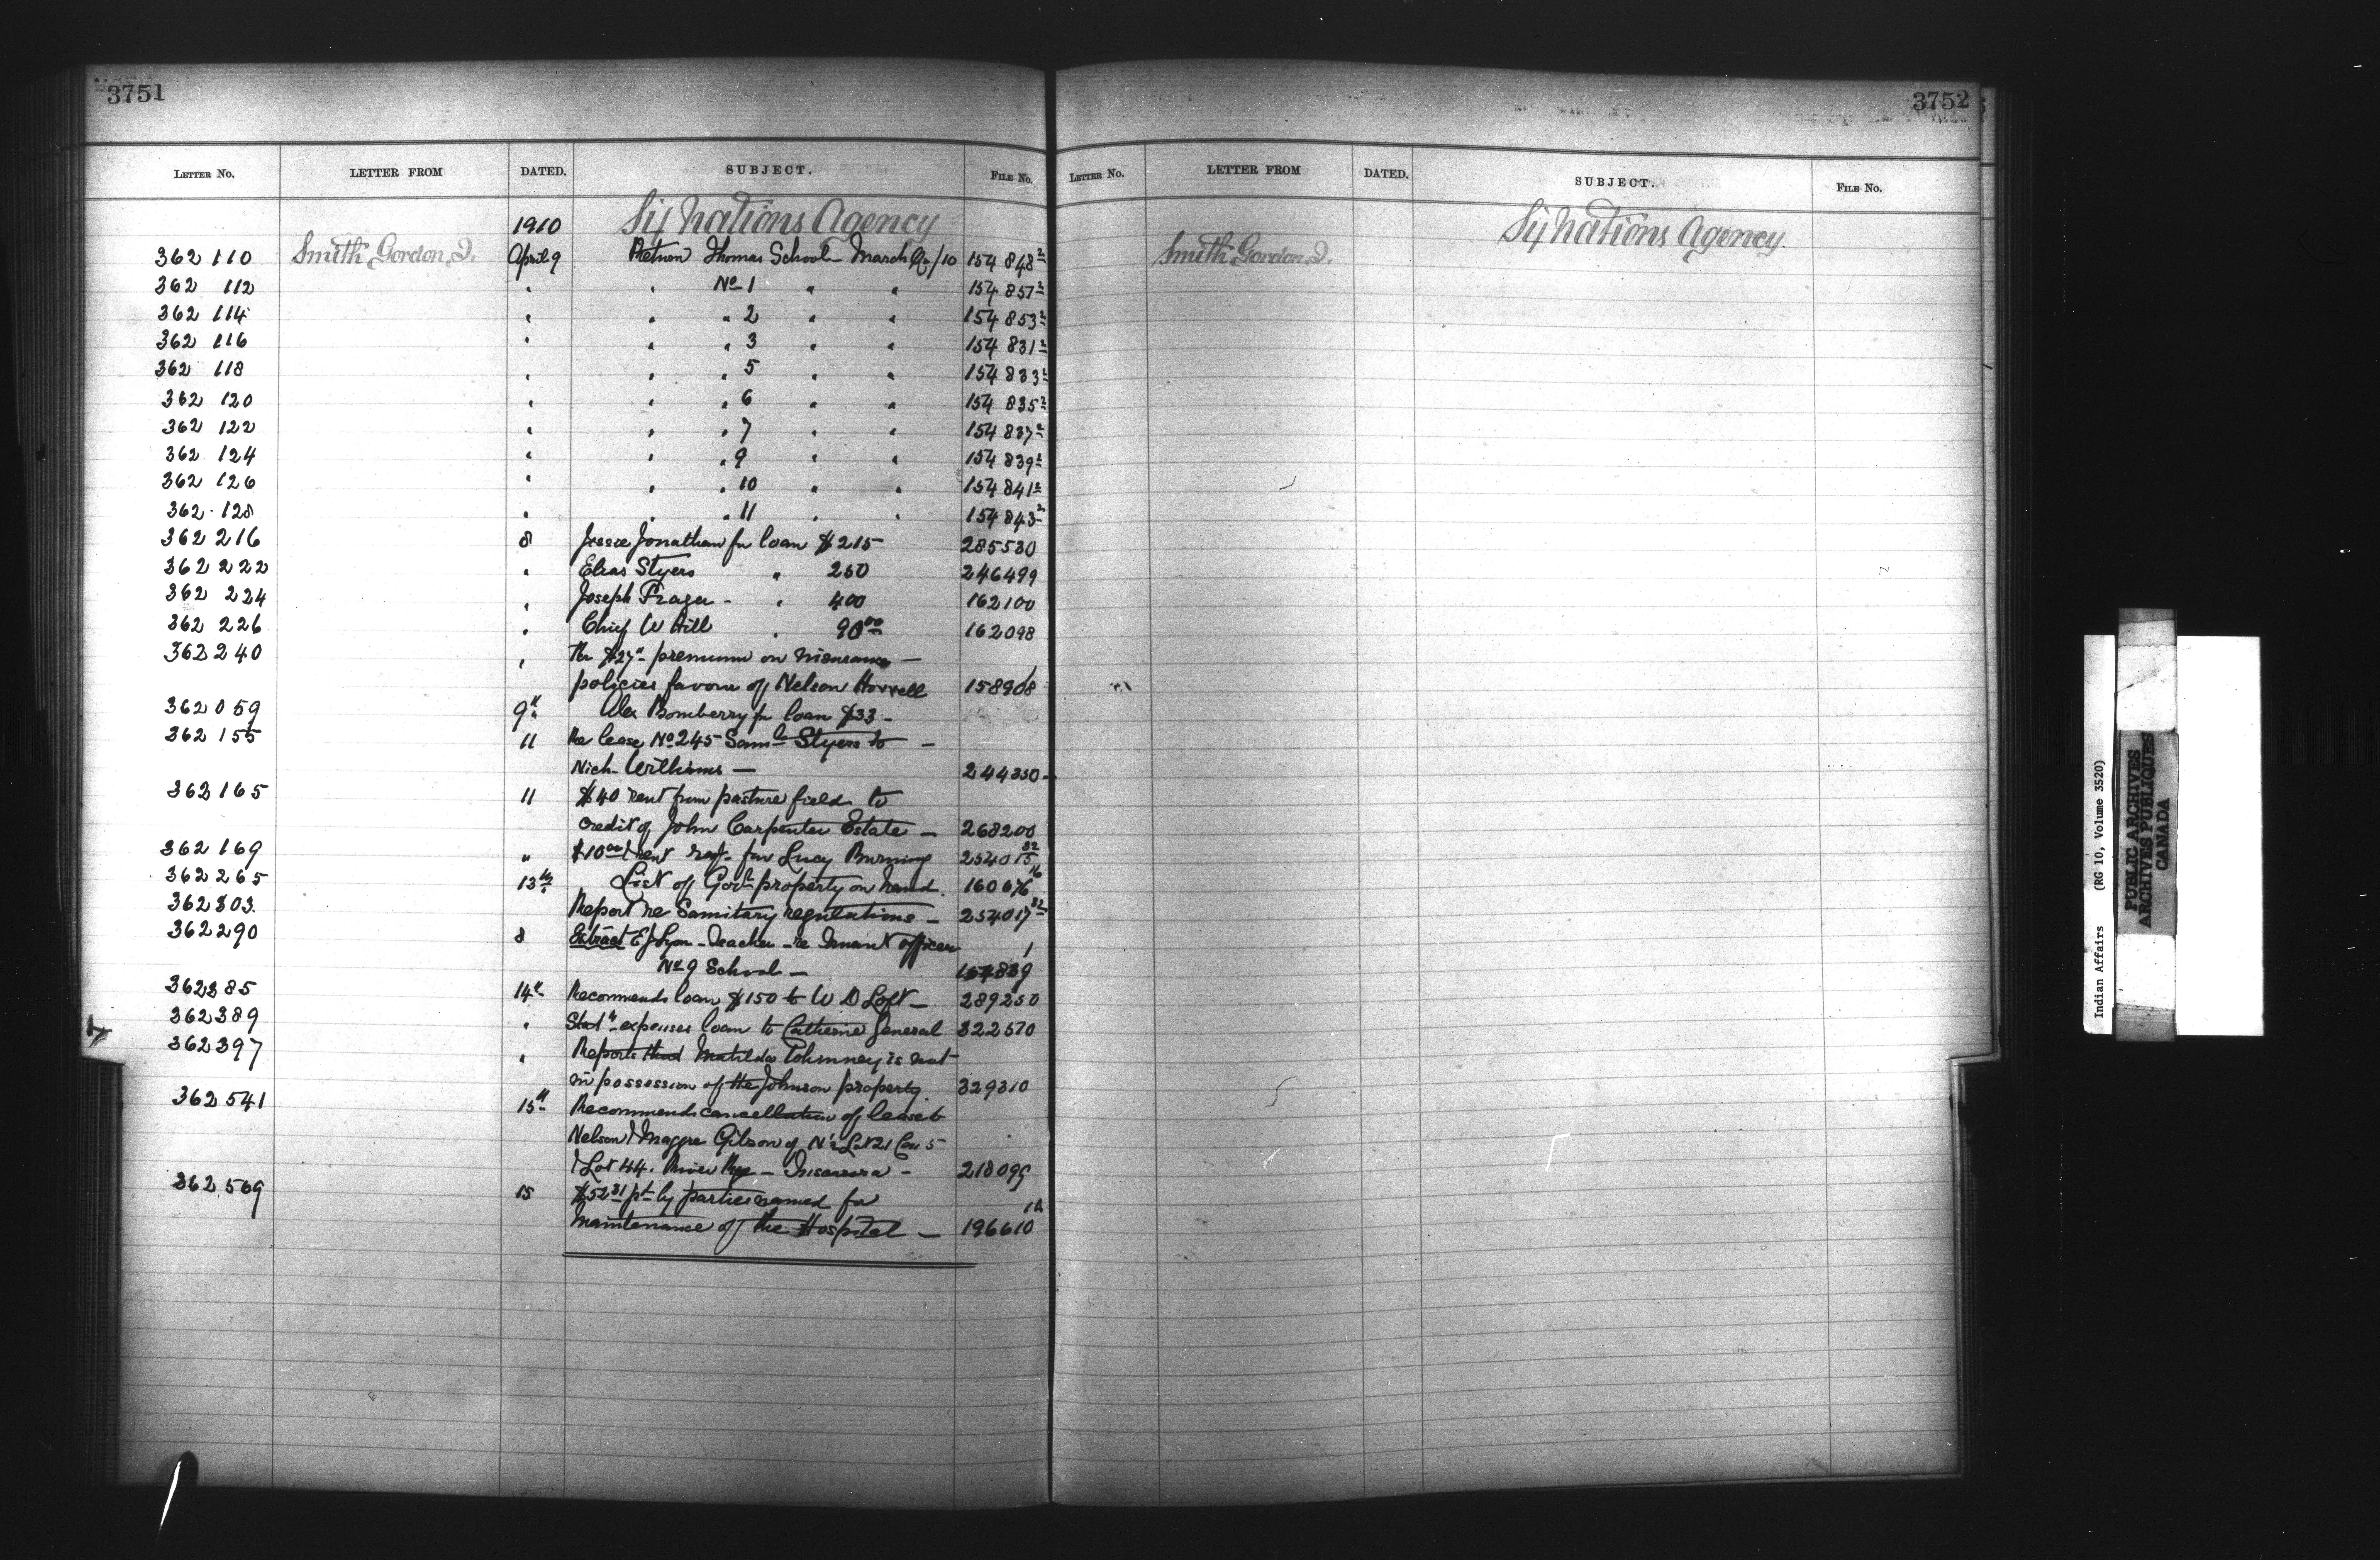 3751
LETTER No. LETTER FROM DATED. SUBJECT. FILE No.
1910 Six Nations Agency
362 110 Smith Gordon J. April 9 Return Thomas School March Qr/10 154 848²
362 112 " " No 1 " " 154 857²
362 114 " " " 2 " " 154 853²
362 116 " " " 3 " " 154 831²
362 118 " " " 5 " " 154 833²
362 120 " " " 6 " " 154 835²
362 122 " " " 7 " " 154 837²
362 124 " " " 9 " " 154 839²
362 126 " " " 10 " " 154 841²
362 128 " " " 11 " " 154 843²
362 216 8 Jesse Jonathan for loan $215 285530
362 222 " Elias Styers " 250 246499
362 224 " Joseph Frazer - " 400 162100
362 226 " Chief W Hill " 90 00 162098
362 240 " Re $27 premium on insurance —
policies favour of Nelson Horrell 158908
362 059 9th Alex Bomberry for loan $33 -
362 155 11 Re lease No 245 Saml Styers to —
Nich. Williams — 244350
362 165 11 $40 rent from pasture field to
credit of John Carpenter Estate — 268200
362 169 " $10 00 rent for Lucy Burning 254015 32
362 265 13th List of Govt property on hand. 160676 16
362303 Report re Sanitary regulations — 254017 32
362290 8 Extract E J Lyon - Teacher - re Truant officer 1
No 9 School — 154839
362385 14th Recommends loan $150 to W D Loft — 289250
362389 " Statt expenses loan to Catherine General 322570
362397 " Reports that Matilda is not
in possession of the Johnson property. 329310
362541 15th Recommends cancellation of lease to
Nelson & Maggie Gibson of N½ Lot 21 Con 5
& Lot 44. River Rge — Tuscarora - 218099
362569 15 $52 31 pd by parties named for 1A
maintenance of the Hospital — 196610
3752
LETTER No. LETTER FROM DATED. SUBJECT. FILE No.
Six Nations Agency.
Smith Gordon J.
Indian Affairs (RG 10, Volume 3520)
PUBLIC ARCHIVES
ARCHIVES PUBLIQUES
CANADA